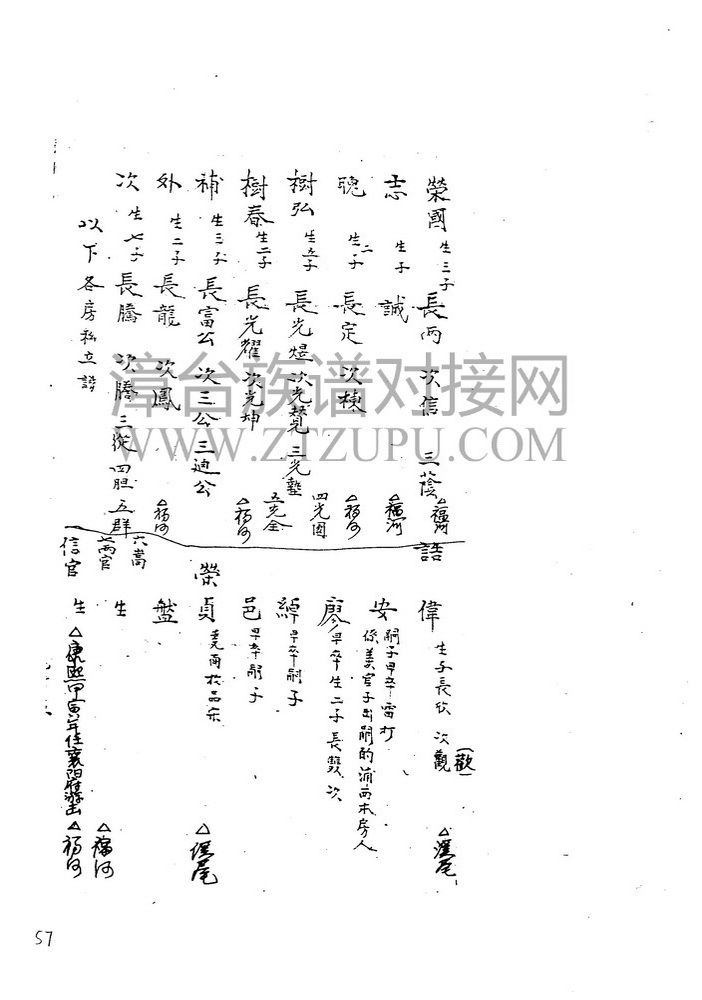 榮國 生三子 長丙 次信 三蔭 △福河
志 生子 誠 △福河
聰 生二子 長定 次棟 △福河
樹弘 生五子 長光煜 次光贊 三光墊 四光國 五光全
樹春 生二子 長光耀 次光坤 △福河
補 生三子 長富公 次三公 三迪公
外 生二子 長龍 次鳳 △福河
次 生七子 長騰 次騰 三從 四胆 五群 六嵩 七兩官
以下各房私立譜
一信官
誥
偉 生子長欣 次觀 (歡) △溪尾
安 嗣子早卒雷打
係美官子出嗣的浦西本房人
廖 早卒生二子長雙次
綽 早卒嗣子
邑 早卒嗣子
榮貞 △埕尾
盤
生 △福河
生 △康熙甲寅年往襄陽府游出 △福河
淳台族谱对接网
WWW.ZTZUPU.COM
57